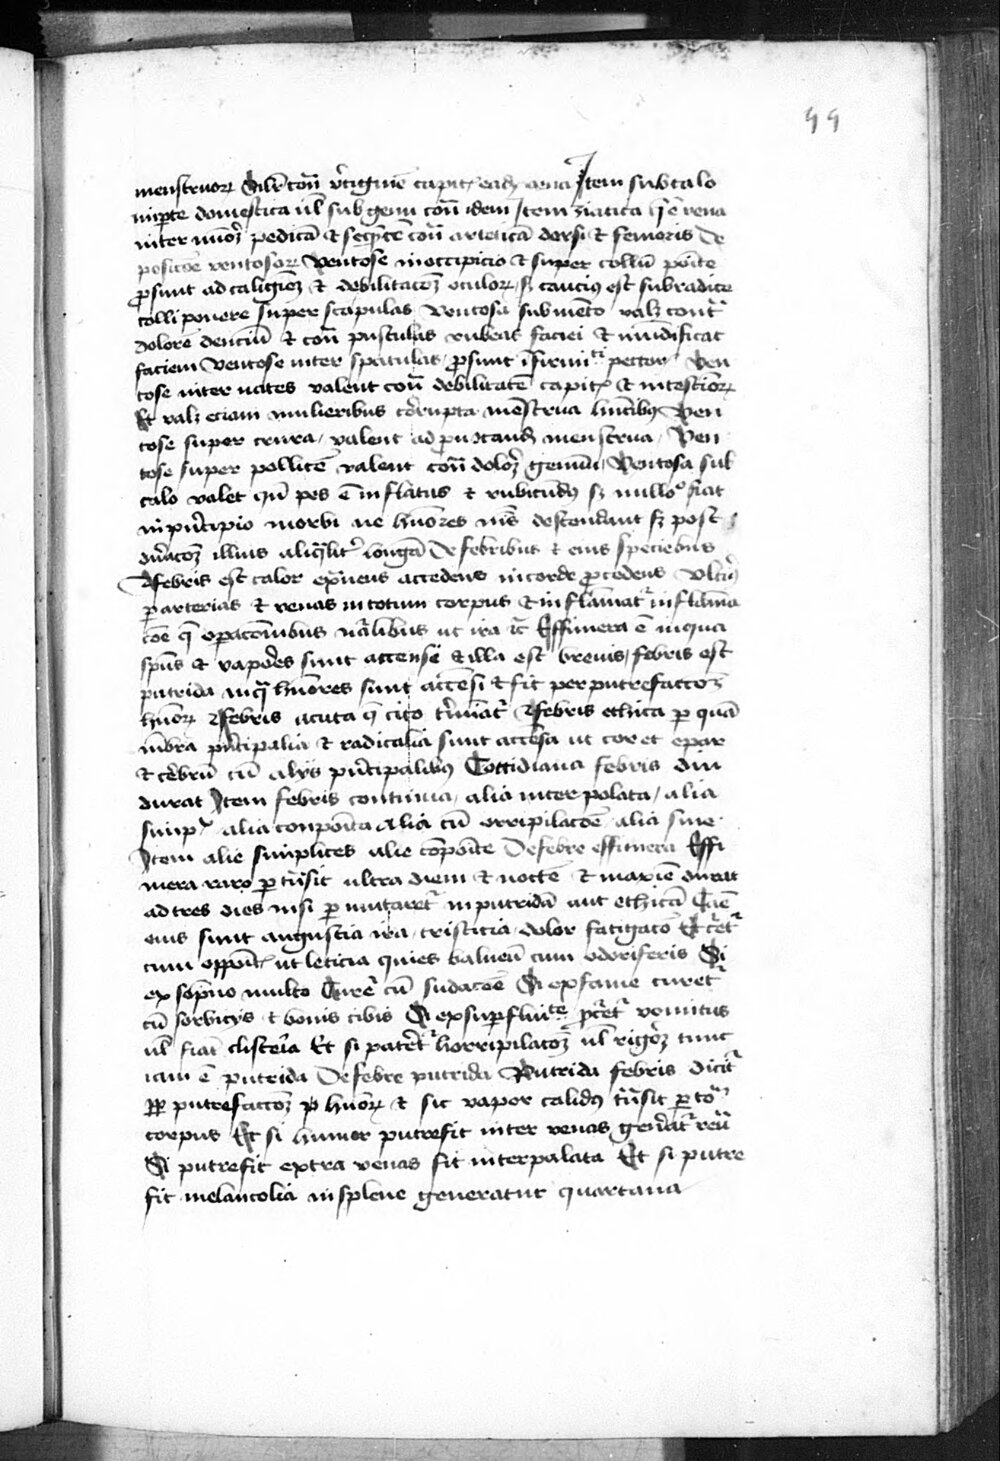 99
menstruorꝝ Silr̄ cont͂ v̓tiginē capit᷒ eadē vena Item sub talo
in ꝑte domestica ul̄ sub genu cont͂ idem Item ziatica q̄ ē vena
inter minorē pedicā et cont͂ arteticā dorsi et femoris De
posicōe ventosarꝝ Ventose in occipicio et super collū poīte
ꝓsunt ad caligīem et debilitacōꝫ oculorꝝ sꝫ caucius est sub radice
colli ponere super scapulas Ventosa sub mēto valꝫ cont͂
dolorē denciū et cont͂ pustulas rubeas faciei et mūdificat
faciem Ventose inter spatulas ꝓsunt īfirmitī pectorꝭ Ven
tose inter nates valent cont͂ debilitatē capitꝭ et intestīorꝝ
Et valꝫ eciam mulieribus corrupta mēstrua hn̄tibꝰ Ven
tose super crura valent ad ꝓuocandū menstrua Ven
tose super pollicē valent cont͂ dolorē genuū Ventosa sub
talo valet qn̄ pes ē inflatus et rubicundꝰ sꝫ nullo° fiat
in pͥncipio morbi ne hūores nīs descendant sꝫ post
duracōꝫ illius aliqͣlitͬ longā De febribus et eius speciebus
Febris est calor ext̓neus accedens in corde ꝓcedens
ꝑ arterias et venas in totum corpus et inflāmatͬ inflāma
cōe q̄ oꝑacōnibus nāalibus ut ira etc̄ Effimera ē in qua
spūs et vapores sunt accense et illa est brevis febris est
putrida in qͣ hūores sunt accēsi et fit per putrefaccōꝫ
hūorꝝ Febris acuta q̄ cito t̓mīatͬ Febris ethica ꝑ quā
mēbra pͥncipalia et radicalia sunt accēsa ut cor et epar
et cerebrū cū alijs pͥncipalibꝰ Cottidiana febris diu
durat Item febris continua alia interpolata alia
simpꝉ alia conposita alia cū orripilacōe alia sine
Item alie simplices alie cōposite De febre effimera Effi
mera raro ꝑ tn̄sit ultra diem et noctē et maxīe durat
ad tres dies nisi ꝑmutaretͬ in putridā aut ethicā Cāe
eius sunt angustia ira tristicia dolor fatigaco Et cͥetͬ
cum oppoītꝭ ut leticia quies balneū cum odoriferis Si
ex sopno multo Curet̓ cū sudacōe Si ex fame curetͬ
cū sorbicijs et bonis cibis Si ex suꝑfluitate ꝓcͥetͬ vomitus
ul̄ fiat clisteria Et si patetͬ horripilacōꝫ ul̄ rigorē tunc
iam ē putrida De febre putrida Putrida febris dicitͬ
ꝓpͭ putrefaccōꝫ hūorꝝ et sic vapor calidꝰ tn̄sit ꝑ totū
corpus Et si humor putrefit inter venas gen̓atͬ
Si putrefit extra venas fit interpalata Et si putre
fit melancolia in splene generatur quartana